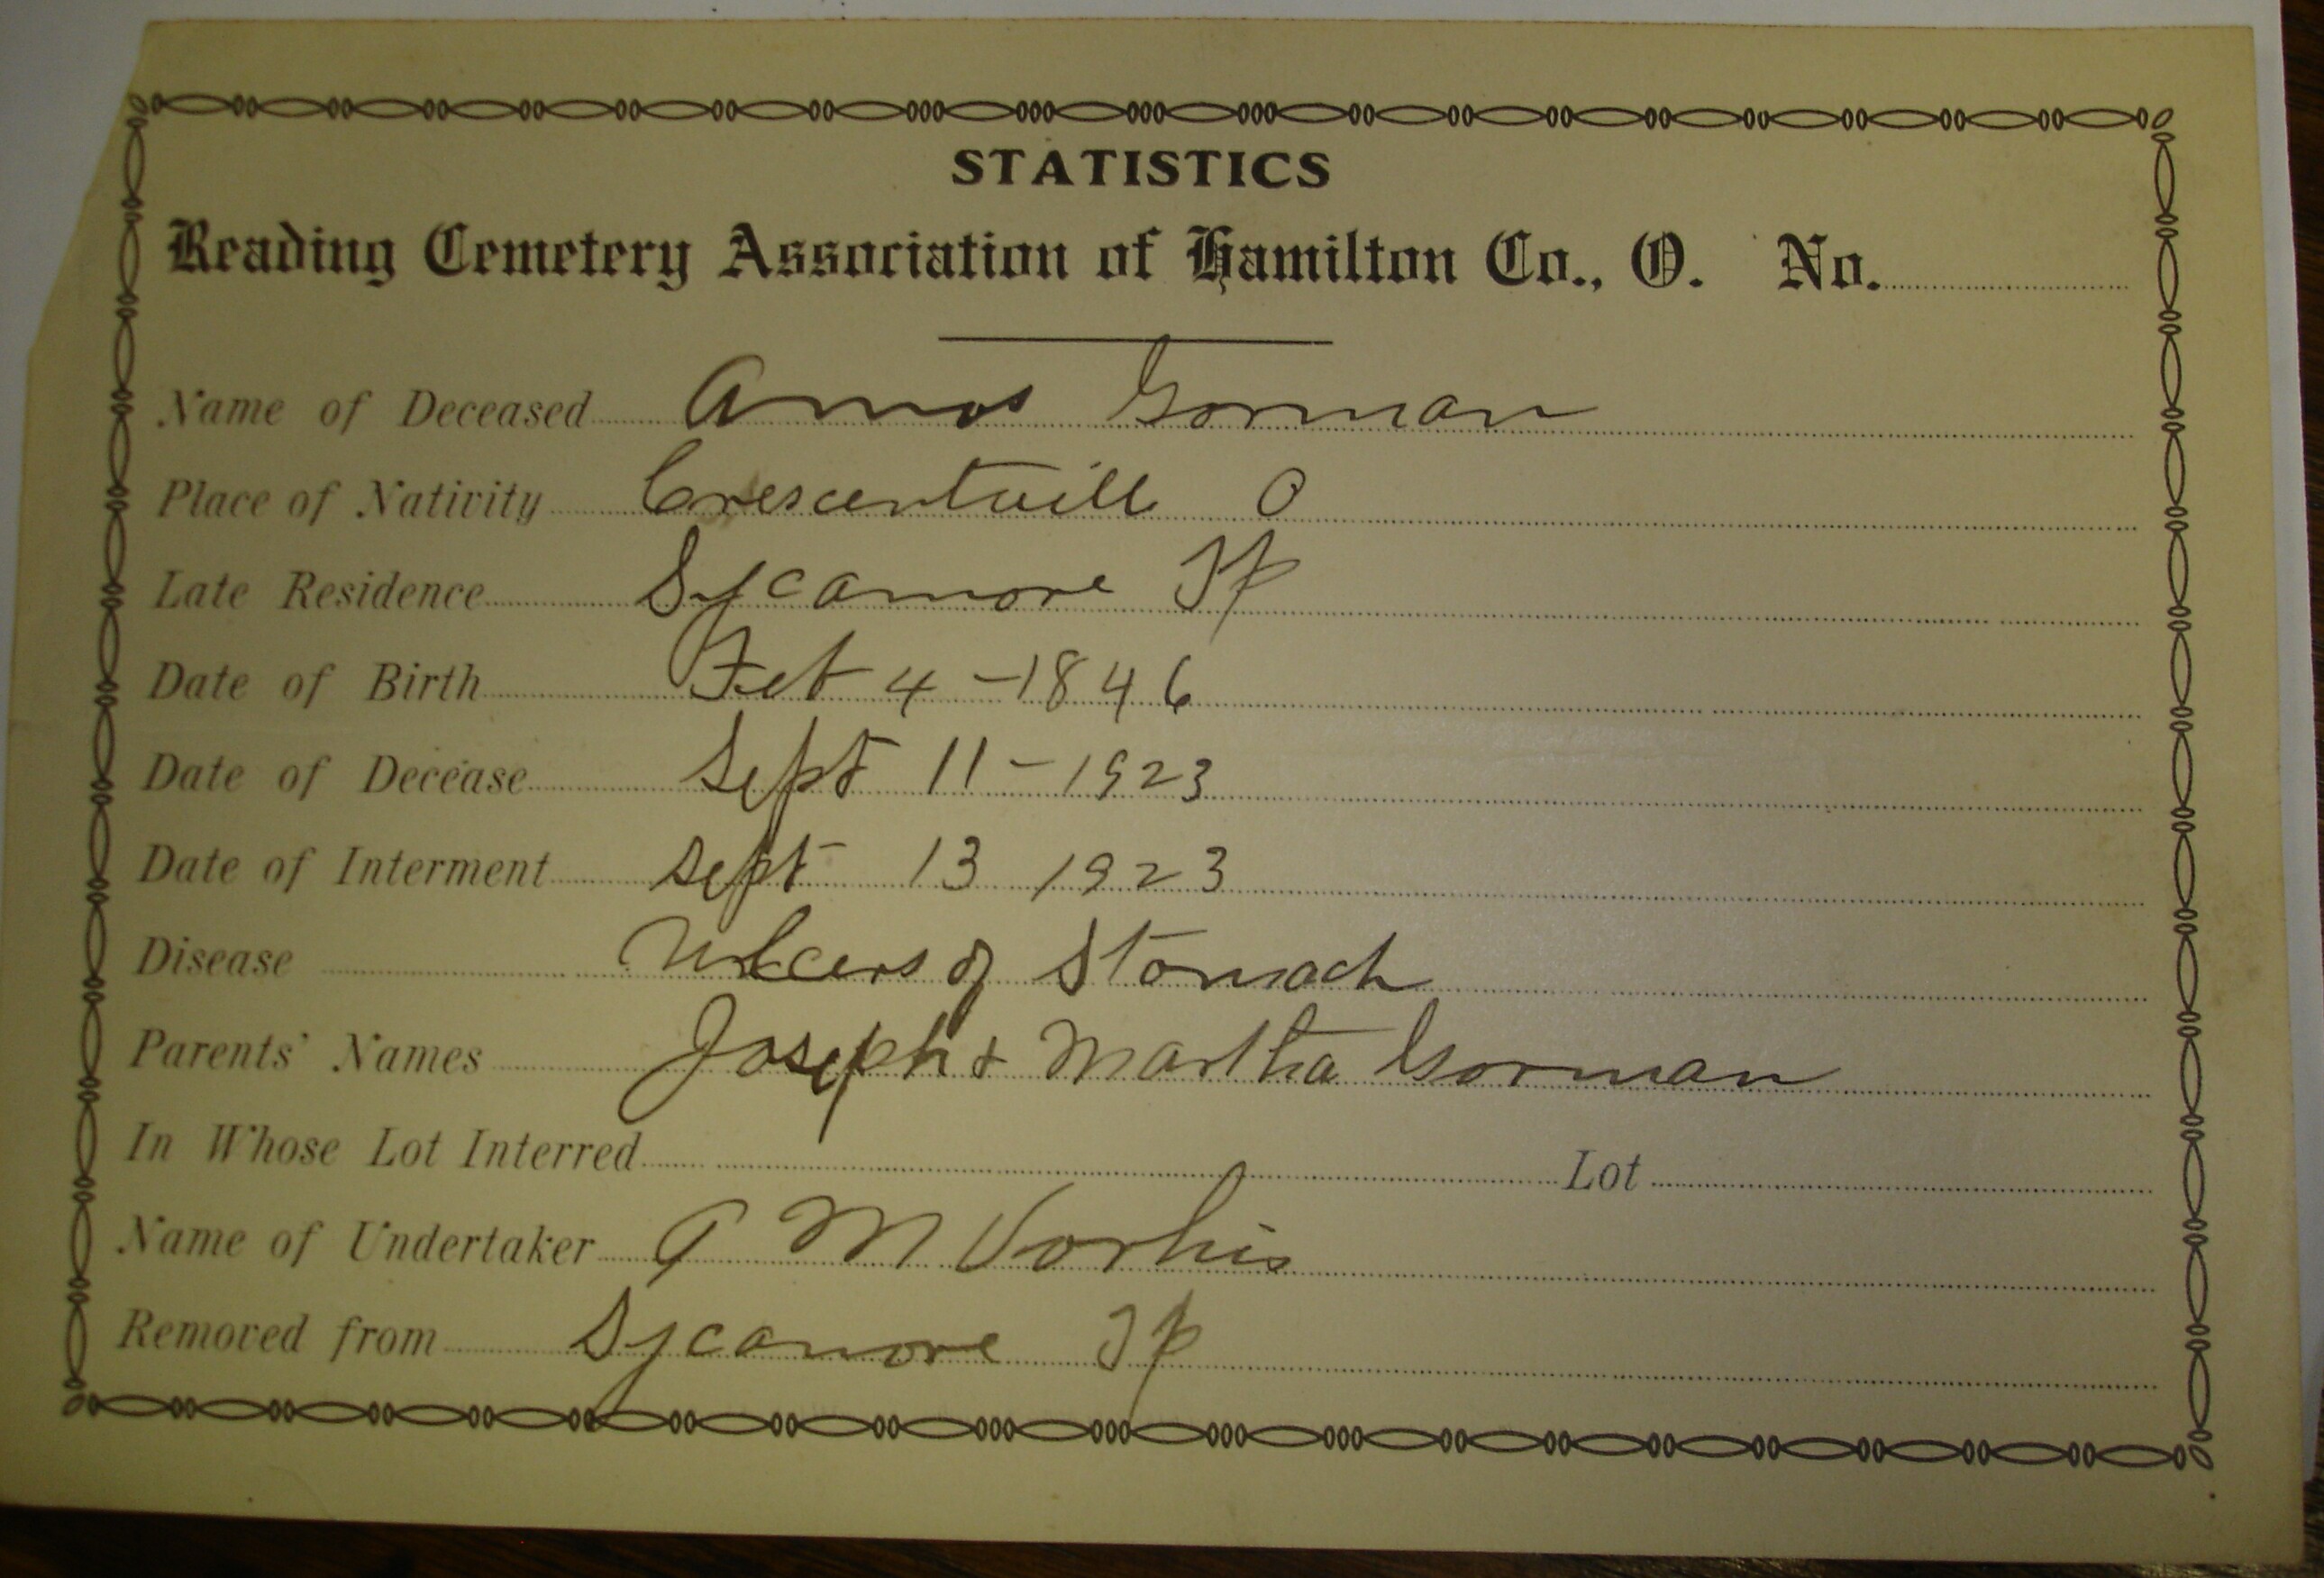 STATISTICS
Reading Cemetery Association of Hamilton Co., O. No.
Name of Deceased Amos Gorman
Place of Nativity Crescentvill O
Late Residence Sycamore Tp
Date of Birth Feb 4 - 1846
Date of Decease Sept 11 - 1923
Date of Interment Sept 13 1923
Disease Ulcers of Stomach
Parents' Names Joseph + Martha Gorman
In Whose Lot Interred Lot
Name of Undertaker M Vorhis
Removed from Sycamore Tp